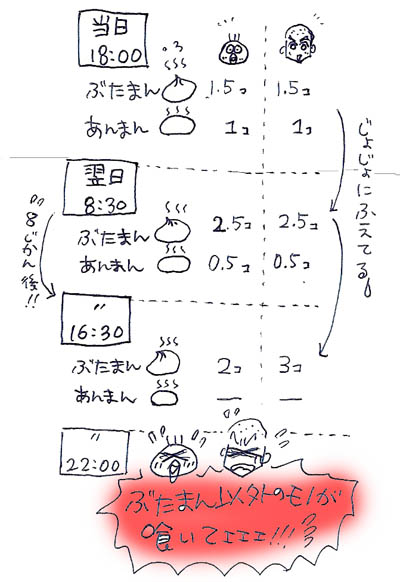 当日
18:00
ぶたまん 1.5コ 1.5コ
あんまん 1コ 1コ
じょじょにふえてる
翌日
8:30
ぶたまん 2.5コ 2.5コ
あんまん 0.5コ 0.5コ
8じかん後!!
〃
16:30
ぶたまん 2コ 3コ
あんまん — —
〃
22:00
ぶたまん以外のモノが
喰いてェェェ!!!